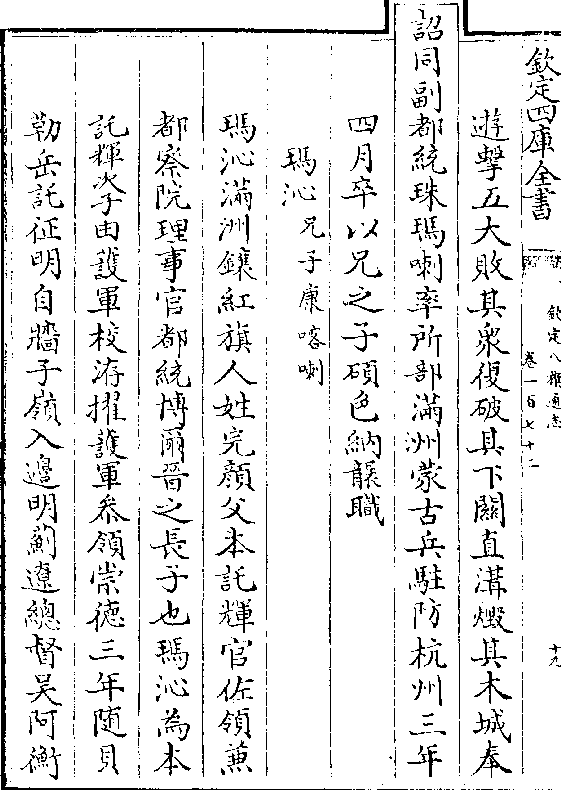 欽定四庫全書
欽定八旗通志
卷一百七十二
十九
遊擊五大敗其衆復破其下關直溝燬其木城奉
詔同副都統珠瑪喇率所部滿洲蒙古兵駐防杭州三年
四月卒以兄之子碩色納襲職
瑪沁兄子康喀喇
瑪沁滿洲鑲紅旗人姓完顏父本託輝官佐領兼
都察院理事官都統博爾晉之長子也瑪沁為本
託輝次子由護軍校洊擢護軍叅領崇德三年随貝
勒岳託征明自牆子嶺入邊明薊遼總督吴阿衡